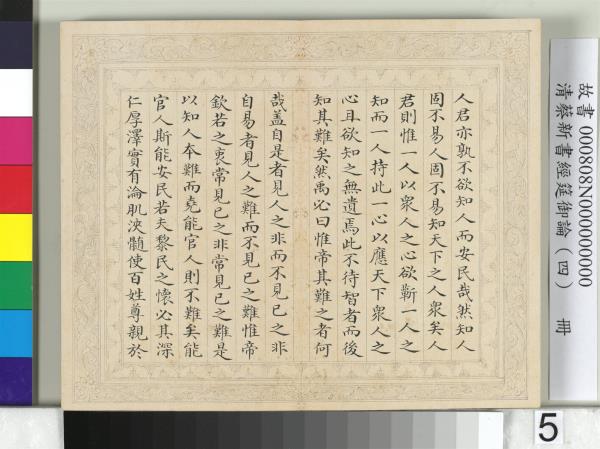 人君亦孰不欲知人而安民哉然知人
固不易人固不易知天下之人衆矣人
君則惟一人以衆人之心欲蘄一人之
知而一人持此一心以應天下衆人之
心耳欲知之無遺焉此不待智者而後
知其難矣然禹必曰惟帝其難之者何
哉盖自是者見人之非而不見己之非
自易者見人之難而不見己之難惟帝
欽若之衷常見己之非常見己之難是
以知人本難而堯能官人則不難矣能
官人斯能安民若夫黎民之懷必其深
仁厚澤實有淪肌浹髓使百姓尊親於
故書 000808N000000000
清蔡新書經筵御論(四) 冊
5